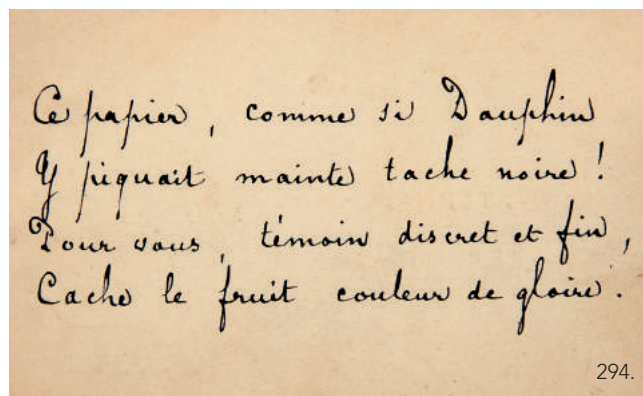 Ce papier, comme si Dauphin
Y piquait mainte tache noire !
Pour vous, témoin discret et fin,
Cache le fruit couleur de gloire.
294.